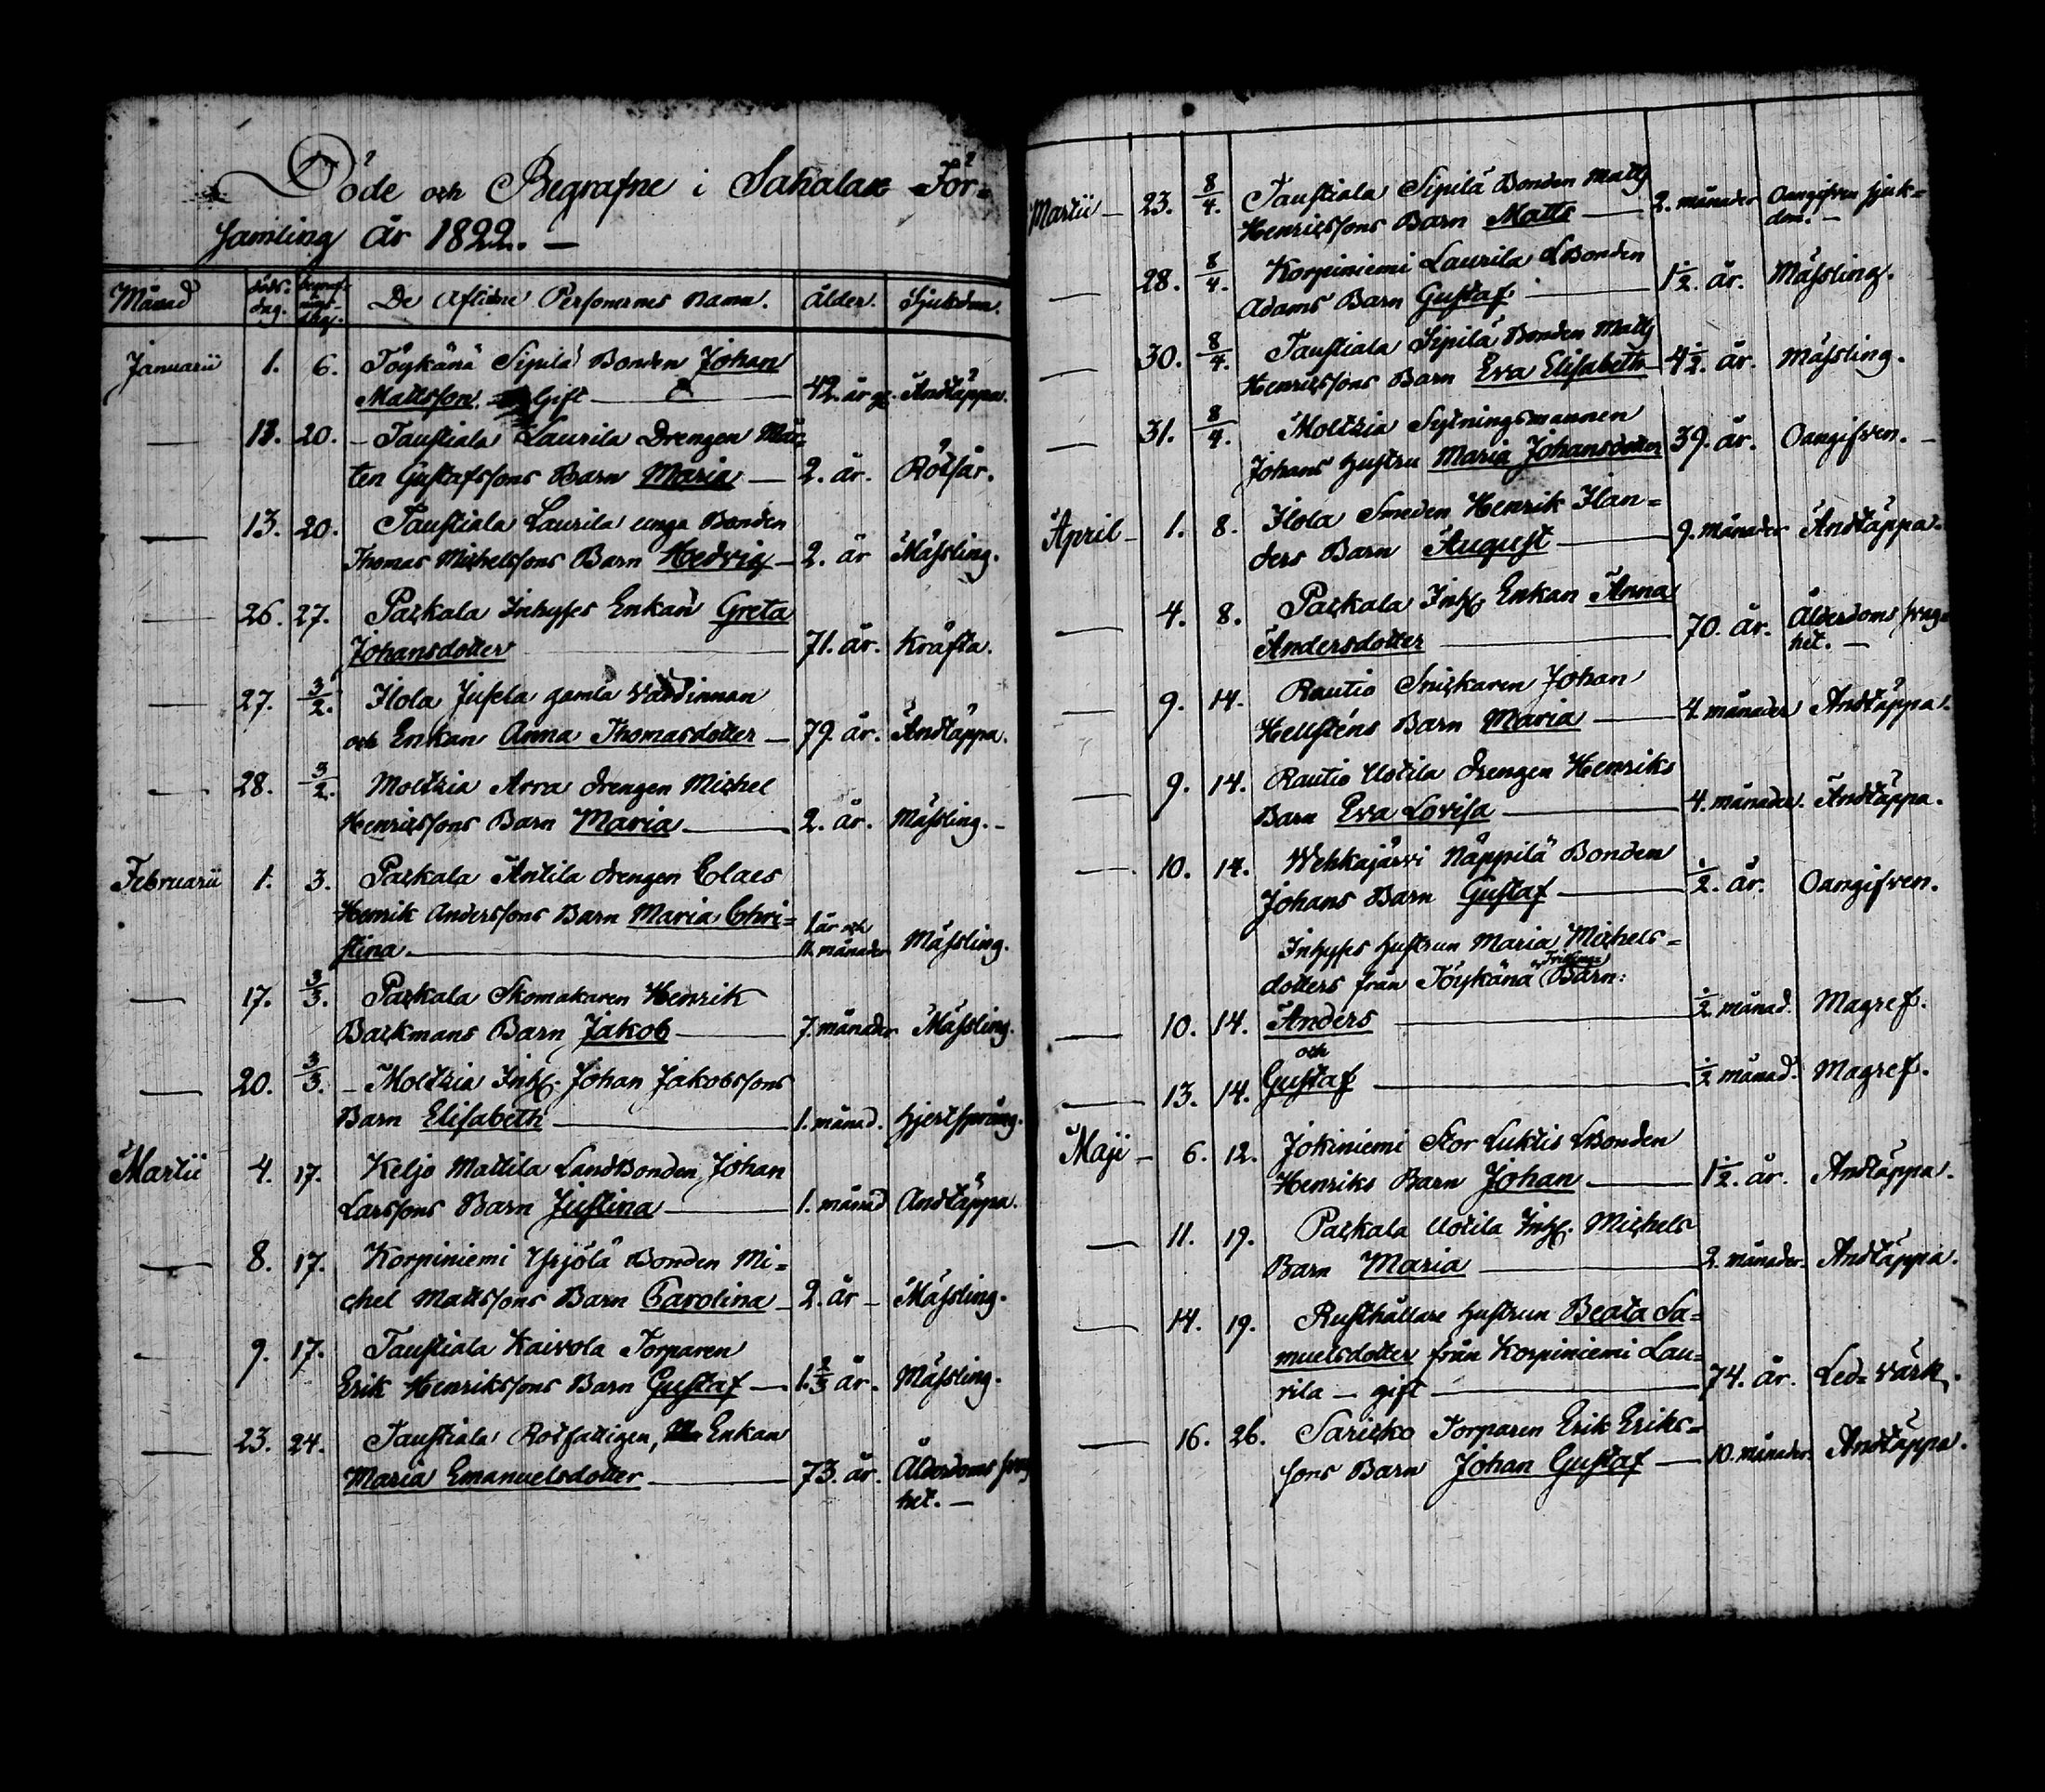 Döde och Begrafne i Sahalax För=
samling År 1822. —
Månad döds- dag. begraf- nings dag. De Aflidne Personernes Namn. Ålder. Sjukdom.
Januarii 1. 6. Töykänä Sipilä Bonden Johan
Mattsson. Gift — 42. år Andtäppa.
— 13. 20. – Taustiala Laurila Drengen Mår=
ten Gustafssons Barn Maria — 2. år. Rötsår.
— 13. 20. Taustiala Laurila unga Bonden
Thomas Michelssons Barn Hedvig — 2. år Mässling.
— 26. 27. Packala Inhyses Enkan Greta
Johansdotter — 71. år. Kräfta.
— 27. 3/2. Ilola Jusela gamla Värdinnan
och Enkan Anna Thomasdotter — 79. år. Andtäppa.
— 28. 3/2. Moltzia Arra drengen Michel
Henricssons Barn Maria — 2. år. Mässling. –
Februarii 1. 3. Packala Antila drengen Claes
Henrik Anderssons Barn Maria Chri=
stina. — 1. år och 11. månader Mässling.
— 17. 3/3. Packala Skomakaren Henrik
Backmans Barn Jakob — 7. månader Mässling.
— 20. 3/3. – Moltzia Inh. Johan Jakobssons
Barn Elisabeth — 1. månad. Hjertsprång.
Martii 4. 17. Keljo Mattila Landbonden Johan
Larssons Barn Justina — 1. månad Andtäppa.
— 8. 17. Korpiniemi Yrjölä Bonden Mi=
chel Mattssons Barn Carolina — 2. år – Mässling.
— 9. 17. Taustiala Kaivola Torparen
Erik Henrikssons Barn Gustaf — 1.2/3 år. Mässling.
— 23. 24. Taustiala Rotfattigen, Enkan
Maria Emanuelsdotter — 73. år. Ålderdoms
het. —
Martii – 23. 8/4. Taustiala Sipilä Bonden Matts
Henricssons Barn Matts — 2. månader Oangifven sjuk=
dom. –
— 28. 8/4. Korpiniemi Laurila LBonden
Adams Barn Gustaf. — 1 1/2. år. Mässling.
— 30. 8/4. Taustiala Sipilä Bonden Matts
Henricssons Barn Eva Elisabeth — 4 1/2. år. Mässling.
— 31. 8/4. Moltzia Sytningsmannen
Johans Hustru Maria Johansdotter 39. år. Oangifven. –
April – 1. 8. Ilola Smeden Henrik Ilan=
ders Barn August — 9. månader Andtäppa.
— 4. 8. Packala Inhs Enkan Anna
Andersdotter — 70. år. Ålderdoms svag=
het. –
— 9. 14. Rautio Snickaren Johan
Hellsténs Barn Maria — 4. månader Andtäppa.
— 9. 14. Rautio Uotila drengen Henriks
Barn Eva Lovisa — 4. månader. Andtäppa.
— 10. 14. Wehkajärvi Näppilä Bonden
Johans Barn Gustaf — 1/2. år. Oangifven.
Inhyses Hustrun Maria Michels=
dotters från Töykänä Tvillings Barn:
— 10. 14. Anders — 1/2 månad. Magref.
och
— 13. 14. Gustaf — 1/2 månad. Magref.
Maji – 6. 12. Jokiniemi Stor Luktis LBonden
Henriks Barn Johan — 1 1/2. år. Andtäppa.
— 11. 19. Packala Uotila Inh. Michels
Barn Maria — 2. månader. Andtäppa.
— 14. 19. Rusthållare Hustrun Beata Sa=
muelsdotter från Korpiniemi Lau=
rila — gift — 74. år. Led= värk.
— 16. 26. Saricko Torparen Erik Eriks=
sons Barn Johan Gustaf — 10. månader. Andtäppa.